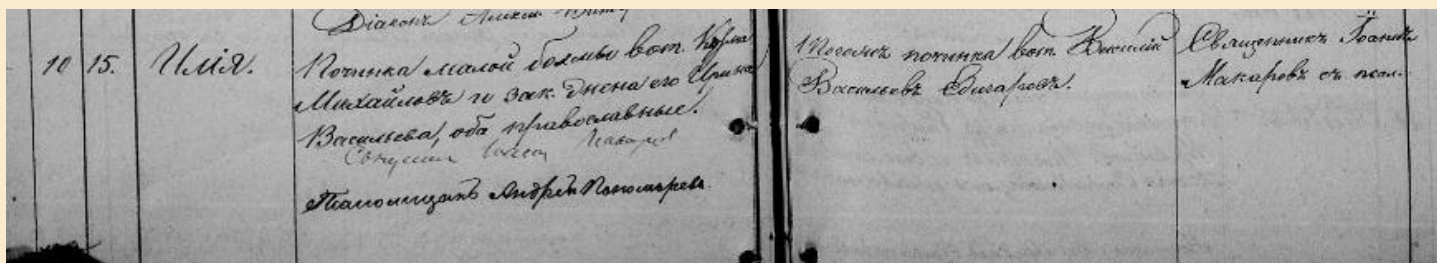 Діаконъ Алексій
10 15. Илія.
Починка малой Волмы вот. Козма
Михайловъ и зак. жена его Ирина
Васильева, оба православные.
Священникъ Іоаннъ Макаровъ
Псаломщикъ Андрей Пономаревъ.
Тогожъ починка вот. Василій
Васильевъ
Священникъ Іоаннъ
Макаровъ съ псал.